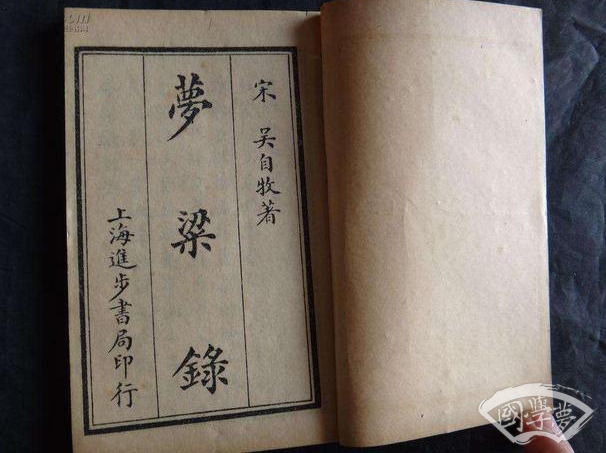 宋 吴自牧著
夢粱錄
上海進步書局印行
國學夢